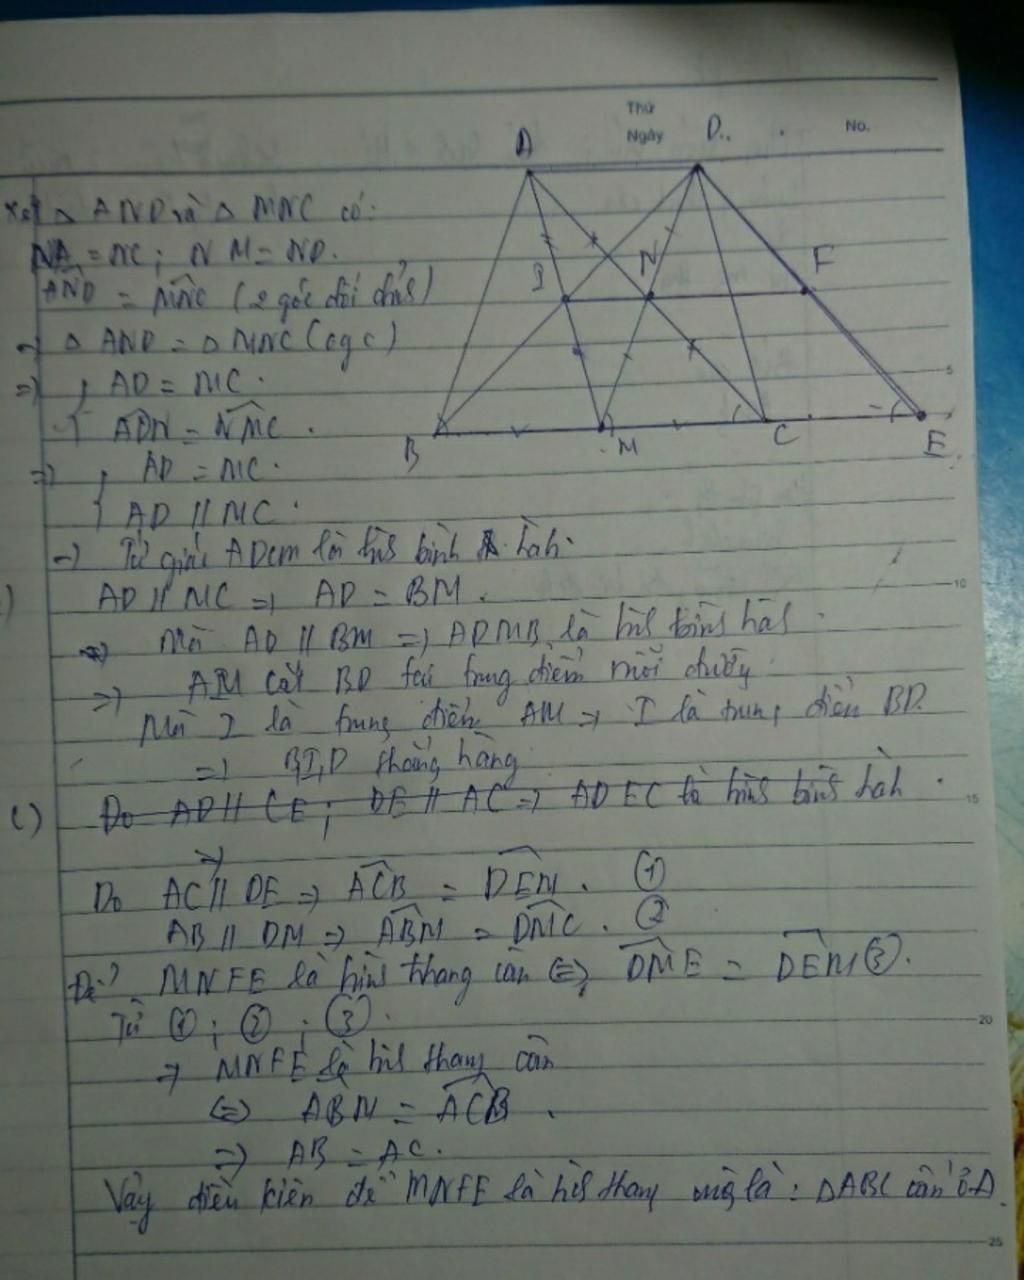 Thứ
Ngày
No.
A
D
I
N
F
B
M
C
E
Xét △ AND và △ MNC có:
NA = NC; NM = ND.
AND = MNC (2 góc đối đỉnh)
→ △ AND = △ MNC (cgc)
=> { AD = MC.
ADN = NMC.
=> { AD = MC.
AD // MC.
→ Tứ giác ADCM là hìh bình hàh.
AD // MC => AD = BM.
Mà AD // BM => ADMB là hìh bìnhhàh.
=> AM cắt BD tại trung điểm mỗi đường
Mà I là trung điểm AM => I là trung điểm BD.
=> B,I,D thẳng hàng
c) Do AD // CE; DE // AC => ADEC là hình bình hàh.
=>
Do AC // DE => ACB = DEM. (1)
AB // DM => ABM = DMC. (2)
Để MNFE là hình thang cân <=> DME = DEM (3).
Từ (1); (2); (3).
=> MNFE là hìh thang cân
<=> ABM = ACB.
=> AB = AC.
Vậy điều kiện để MNFE là hìh thang là: △ABC cân ở A
5
10
15
20
25